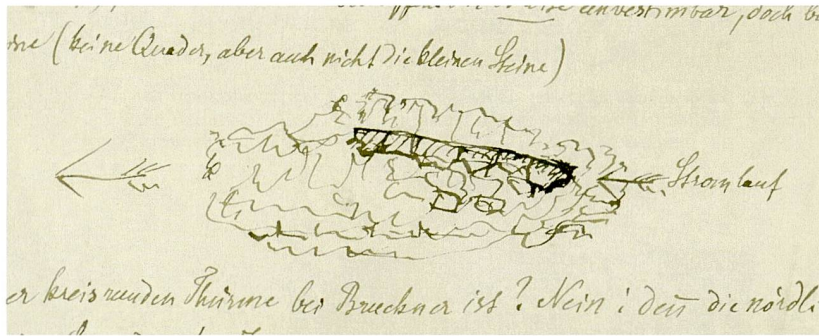 unbestimbar, doch
(keine Quader, aber auch nicht die kleinen Steine)
Stromlauf
er kreisrunden Thürme bei Brueckner ist? Nein: den̅ die nördl